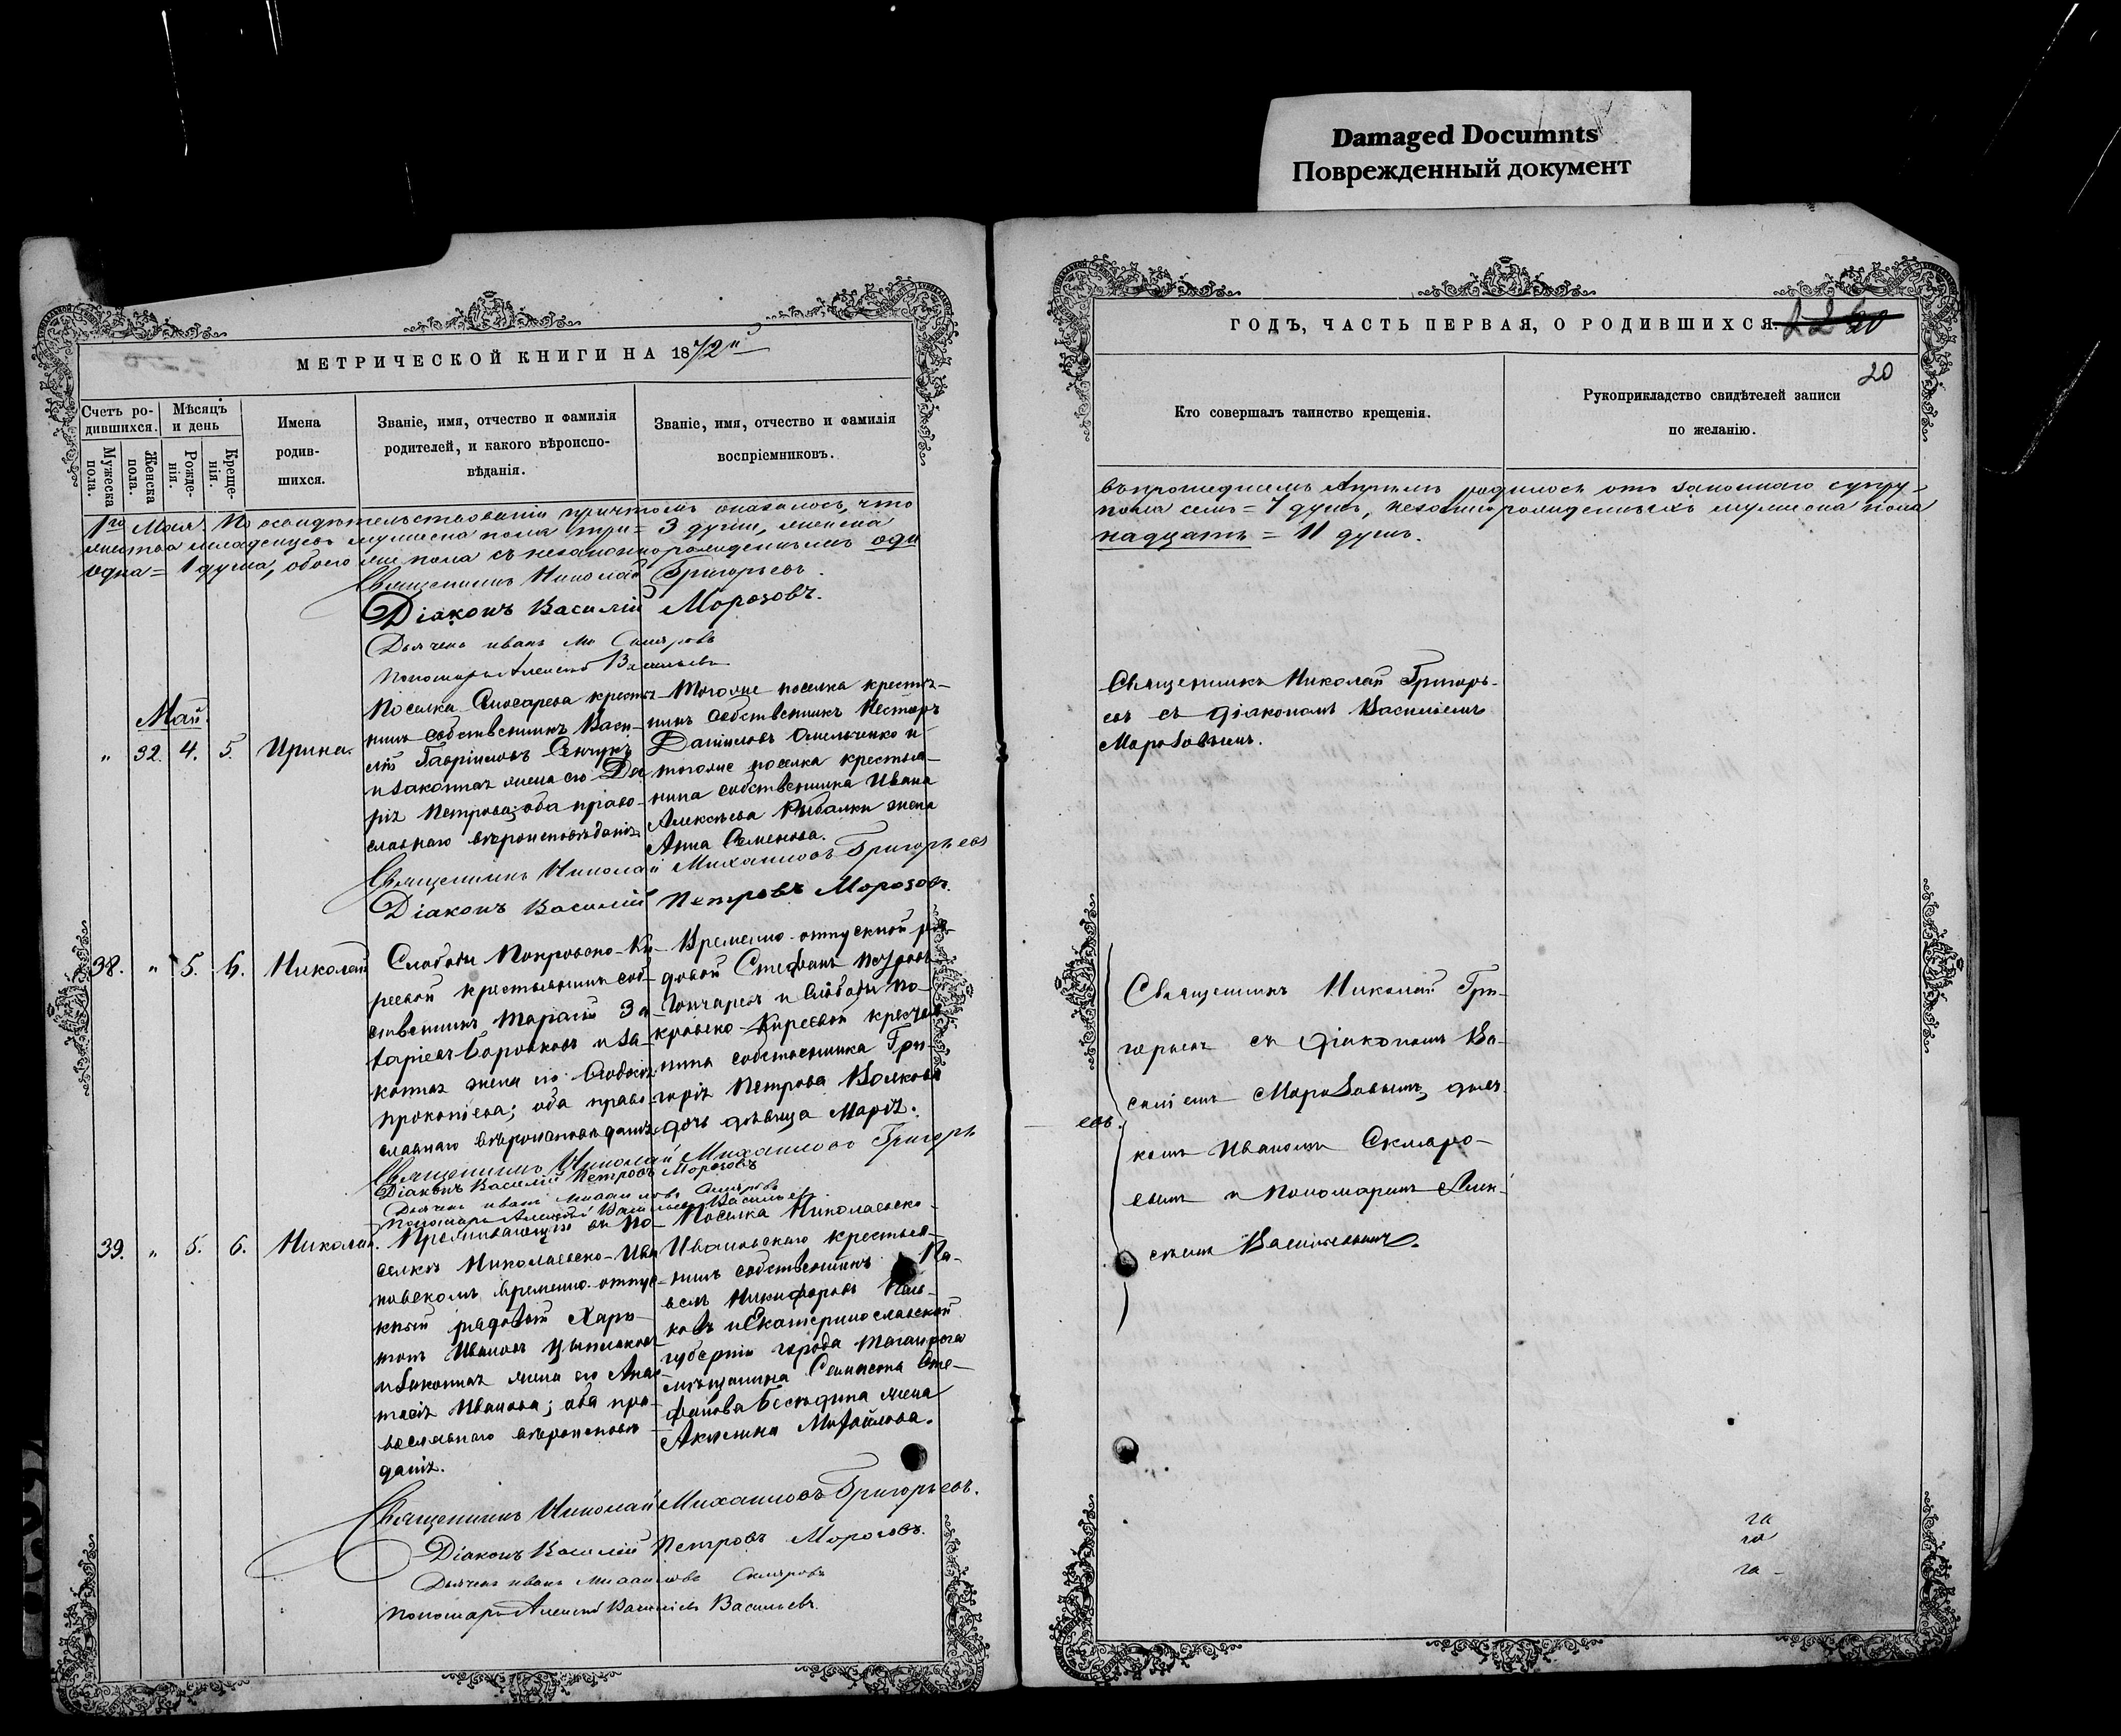 Damaged Documnts
Поврежденный документ
МЕТРИЧЕСКОЙ КНИГИ НА 1872й
Счетъ ро-
дившихся.
Мѣсяцъ
и день
Мужеска
пола.
Женска
пола.
Рожде-
нія.
Креще-
нія.
Имена
родив-
шихся.
Званіе, имя, отчество и фамилія
родителей, и какого вѣроиспо-
вѣданія.
Званіе, имя, отчество и фамилія
воспріемниковъ.
1го Мая. По освидѣтельствованіи причтомъ оказалось, что
младенцевъ мужеска пола три = 3 души, женска
одна = 1 душа, обоего же пола съ незаконнорожденнымъ оди
Священникъ Николай Григорьевъ.
Діаконъ Василій Морозовъ.
Дьячекъ Иванъ Скляровъ
Пономарь Алексѣй Васильевъ
Май.
„ 32. 4. 5. Ирина.
Поселка Слюсарева крестья-
нинъ собственникъ Васи-
лій Гавріиловъ
и законная жена его Да
рія Петрова; оба право-
славнаго вѣроисповѣданія.
Тогоже поселка крестья-
нинъ собственникъ Несторъ
Даніиловъ Омельченко и
тогоже поселка крестья-
нина собственника Ивана
Алексѣева Рыбалки жена
Анна Семенова.
Священникъ Николай Михаиловъ Григорьевъ
Діаконъ Василій Петровъ Морозовъ.
38. „ 5. 6. Николай
Слободы Покровско-Ки-
реевой крестьянинъ соб-
ственникъ Тарасій За
харіевъ Боровковъ и за-
конная жена его Ѳеодосія
Прокопіева; оба право-
славнаго вѣроисповѣданія.
Временно-отпускной ря-
довой Стефанъ Петровъ
Гончаревъ и Слободы По-
кровско-Киреевой крестья
нина собственника Гри-
горія Петрова Волкова
дочь дѣвица Марія.
Священникъ Николай Михаиловъ Григорь
евъ.
Діаконъ Василій Петровъ Морозовъ
Дьячекъ Иванъ Михаиловъ Скляровъ
Пономарь Алексѣй Васильевъ Васильевъ.
39. „ 5. 6. Николай.
Проживающій въ По-
селкѣ Николаевско-Ива
новскомъ временно-отпус-
кный рядовой Хари-
тонъ Ивановъ
и законная жена его Анас-
тасія Иванова; оба пра-
вославнаго вѣроисповѣ-
данія.
Поселка Николаевско-
Ивановскаго крестья-
нинъ собственникъ Па-
велъ Никифоровъ
и Екатеринославской
губерніи города Таганрога
мѣщанина Сте-
фанова Бесѣдина жена
Акилина Михайлова.
Священникъ Николай Михаиловъ Григорьевъ.
Діаконъ Василій Петровъ Морозовъ.
Дьячекъ Иванъ Михаиловъ Скляровъ
Пономарь Алексѣй Васильевъ Васильевъ.
ГОДЪ, ЧАСТЬ ПЕРВАЯ, О РОДИВШИХСЯ.
20
Кто совершалъ таинство крещенія.
Рукоприкладство свидѣтелей записи
по желанію.
въ прошедшемъ Апрѣлѣ родилось отъ законнаго супру-
пола семь = 7 душъ, незаконнорожденныхъ мужеска пола
надцать = 11 душъ.
Священникъ Николай Григорь-
евъ съ Діакономъ Василіемъ
Морозовымъ.
Священникъ Николай Гри-
горьевъ съ Діакономъ Ва-
силіемъ Морозовымъ, дьяч-
комъ Иваномъ Скляро-
вымъ и Пономаремъ Алек-
сѣемъ Васильевымъ.
га
га
га -